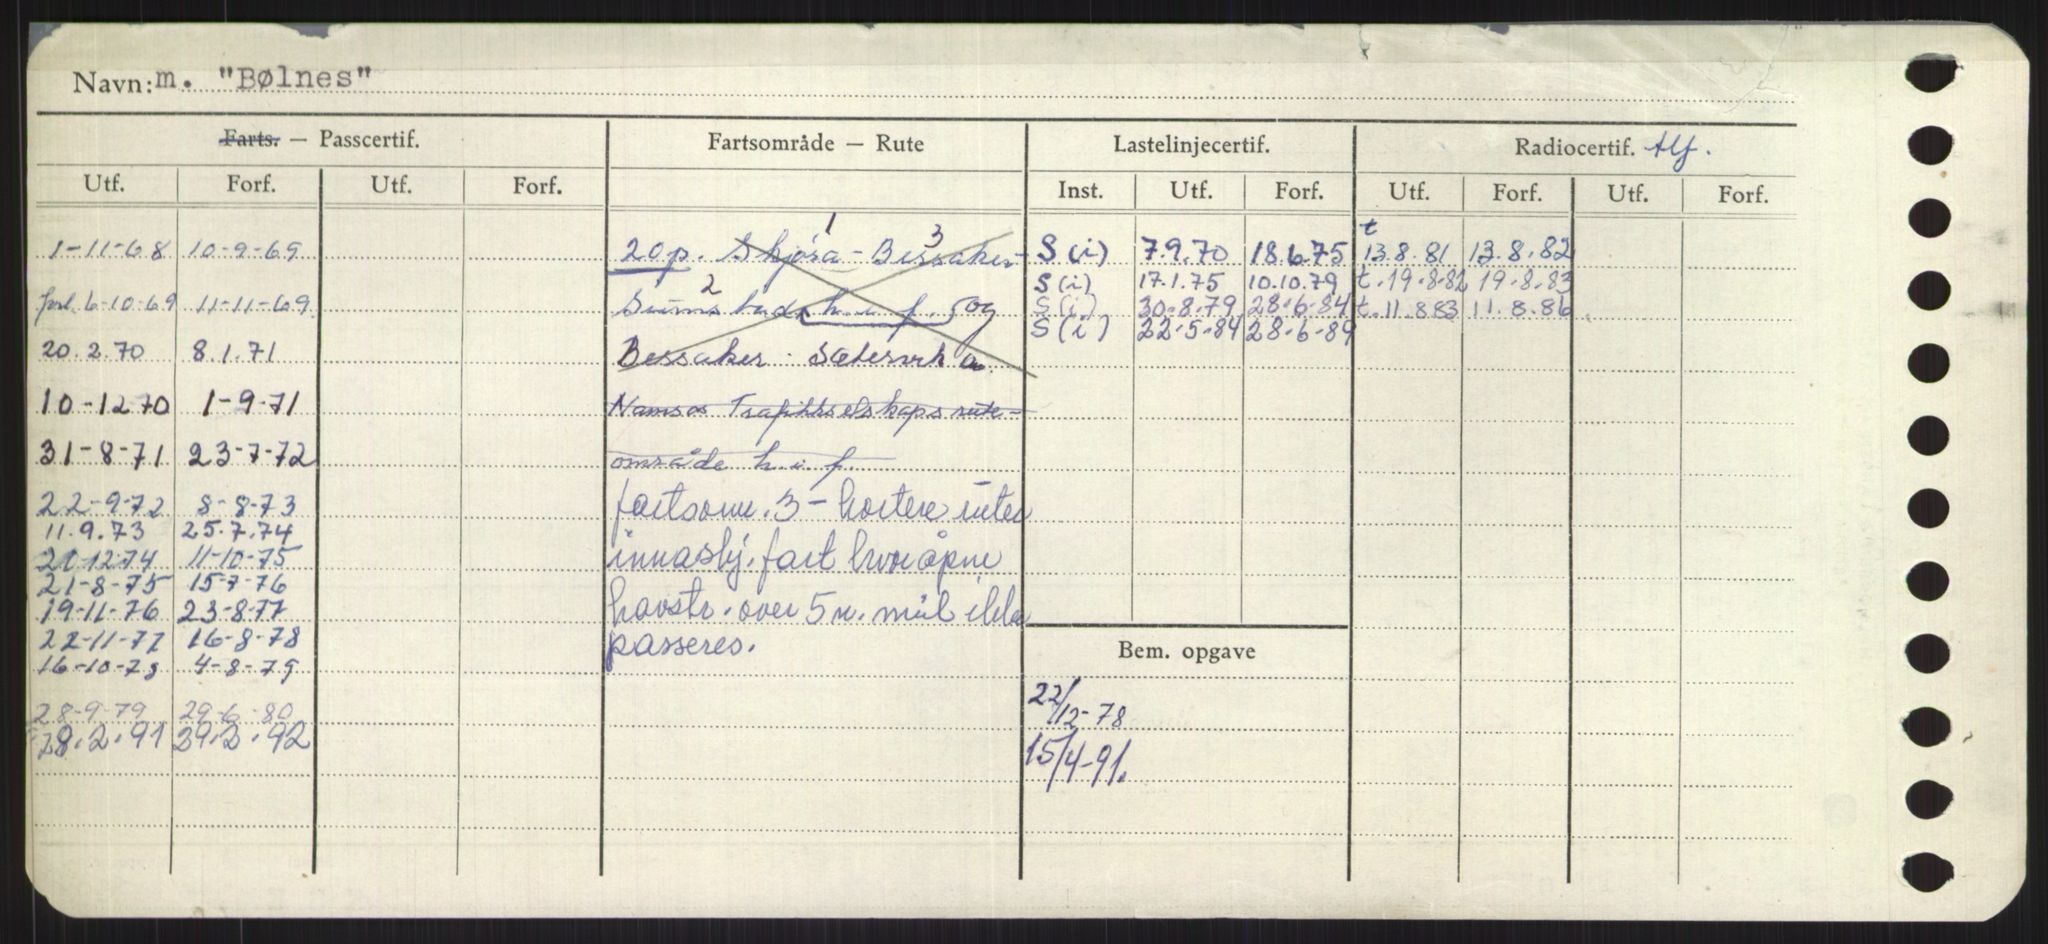 Navn: m. "Bølnes"
Farts. — Passcertif. Fartsområde — Rute Lastelinjecertif. Radiocertif. tlf.
Utf. Forf. Utf. Forf. Inst. Utf. Forf. Utf. Forf. Utf. Forf.
1-11-68 10-9-69 20 p. Skjøra - Bessaker - S (i) 7.9.70 18.6.75 t 13.8.81 13.8.82
1 3
S (i) 17.1.75 10.10.79 t. 19.8.82 19.8.83
2
forl. 6-10-69 11-11-69 h. i. f. og S (i) 30.8.79 28.6.84 t. 11.883 11.8.86
S (i) 22.5.84 28.6.89
20.2.70 8.1.71 Bessaker - Sætervik
10-12 70 1-9-71 Namsos Trafikkselskaps rute-
31-8-71 23-7-72 område h. i. f.
22-9-72 8-8-73 fartsomr. 3 - kortere ruter
11.9.73 25.7.74
21-12-74 11-10-75 innaskj. fart hvor åpne
21-8-75 15-7-76
19-11-76 23-8-77 havstr. over 5 n. mil ikke
22-11-77 16-8-78 passeres.
Bem. opgave
16-10-78 4-8-79
22/12-78
28-9-79 29-6-80
28.2.91 29.2.92
15/4-91.